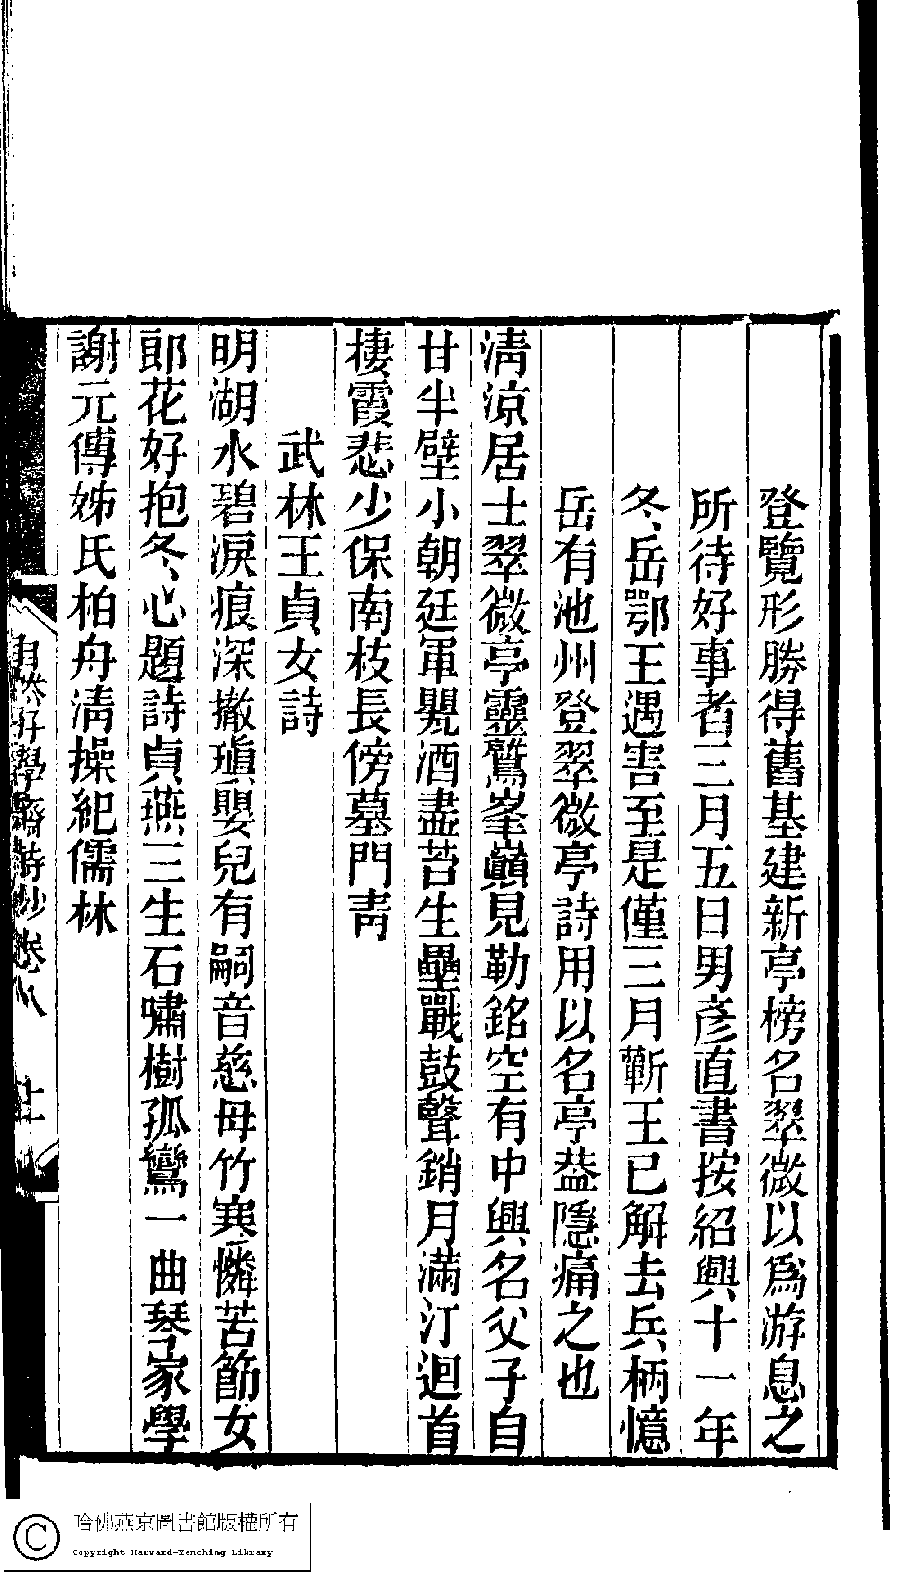 登覽形勝得舊基建新亭榜名翠微以爲游息之
所待好事者三月五日男彥直書按紹興十一年
冬岳鄂王遇害至是僅三月蘄王已解去兵柄憶
岳有池州登翠微亭詩用以名亭葢隱痛之也
淸涼居士翠微亭靈鷲峯巔見勒銘空有中興名父子自
甘半壁小朝廷軍兢酒盡苔生壘戰鼓聲銷月滿汀迴首
棲霞悲少保南枝長傍墓門靑
武林王貞女詩
明湖水碧淚痕深撤瑱嬰兒有嗣音慈母竹寒憐苦節女
郎花好抱冬心題詩貞燕三生石嘯樹孤鸞一曲琴家學
謝元傳姊氏柏舟淸操紀儒林
自然好學齋詩鈔卷八
十一
哈佛燕京圖書館版權所有
Copyright Harvard-Yenching Library